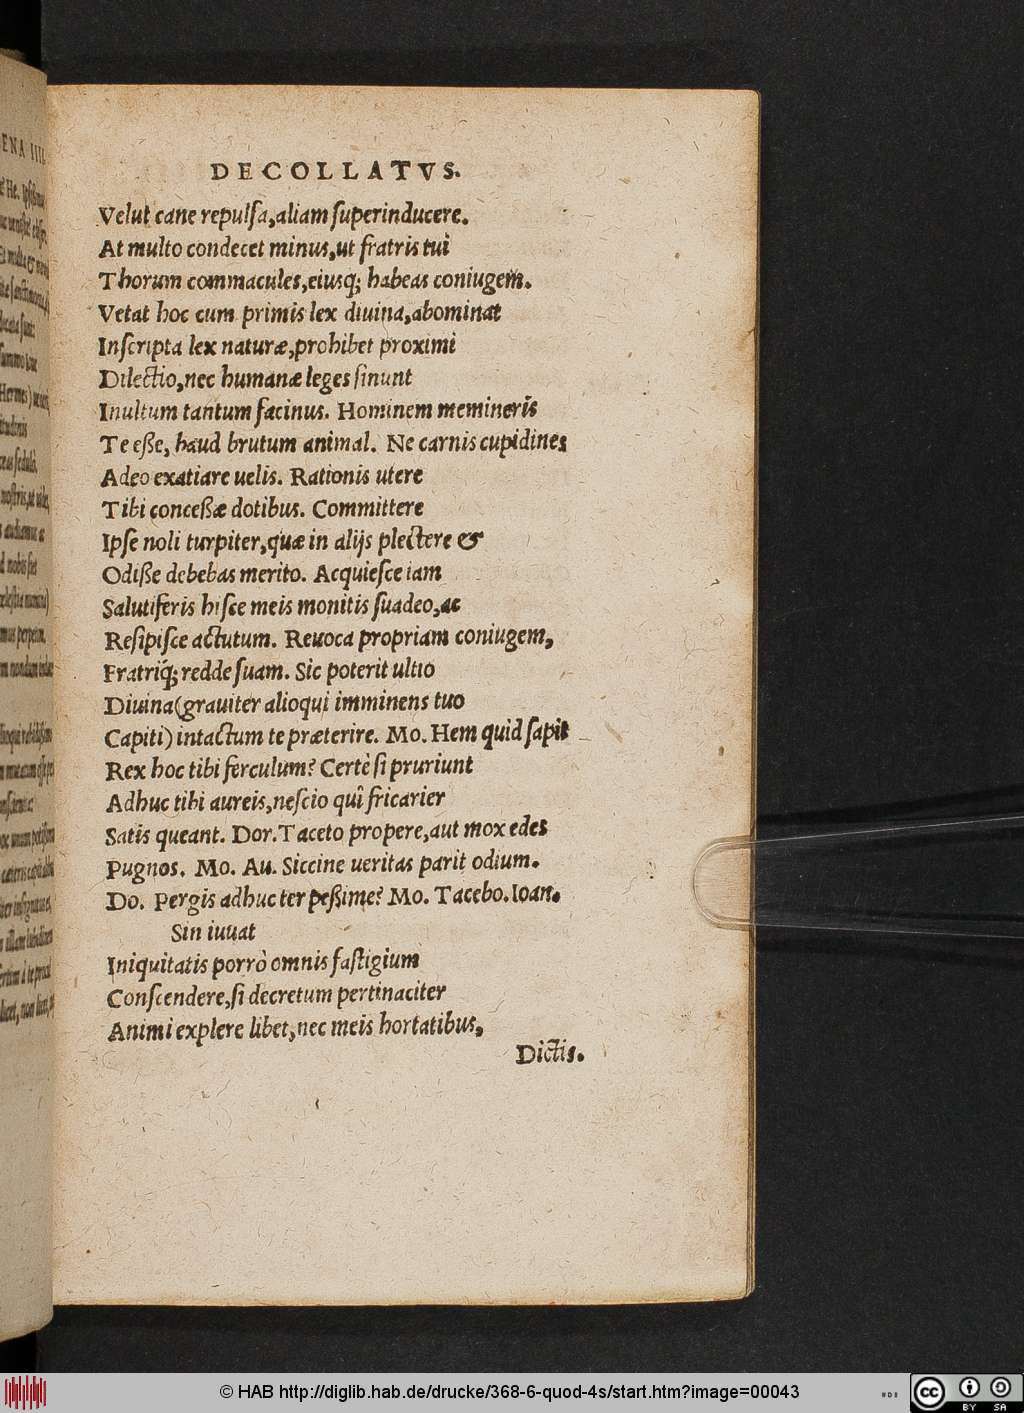 DECOLLATVS.
Velut cane repulsa, aliam superinducere.
At multo condecet minus, ut fratris tui
Thorum commacules, eiusq; habeas coniugem.
Vetat hoc cum primis lex diuina, abominat
Inscripta lex naturæ, prohibet proximi
Dilectio, nec humanæ leges sinunt
Inultum tantum facinus. Hominem memineris
Te eße, haud brutum animal. Ne carnis cupidines
Adeo exatiare uelis. Rationis utere
Tibi conceßæ dotibus. Committere
Ipse noli turpiter, quæ in alijs plectere &
Odiße debebas merito. Acquiesce iam
Salutiferis hisce meis monitis suadeo, ac
Resipisce actutum. Reuoca propriam coniugem,
Fratriq́; redde suam. Sic poterit ultio
Diuina (grauiter alioqui imminens tuo
Capiti) intactum te præterire. Mo. Hem quid sapit
Rex hoc tibi ferculum? Certè si pruriunt
Adhuc tibi aureis, nescio quî fricarier
Satis queant. Dor. Taceto propere, aut mox edes
Pugnos. Mo. Au. Siccine ueritas parit odium.
Do. Pergis adhuc ter peßime? Mo. Tacebo. Ioan.
Sin iuuat
Iniquitatis porrò omnis fastigium
Conscendere, si decretum pertinaciter
Animi explere libet, nec meis hortatibus,
Dictis.
© HAB http://diglib.hab.de/drucke/368-6-quod-4s/start.htm?image=00043
cc BY SA